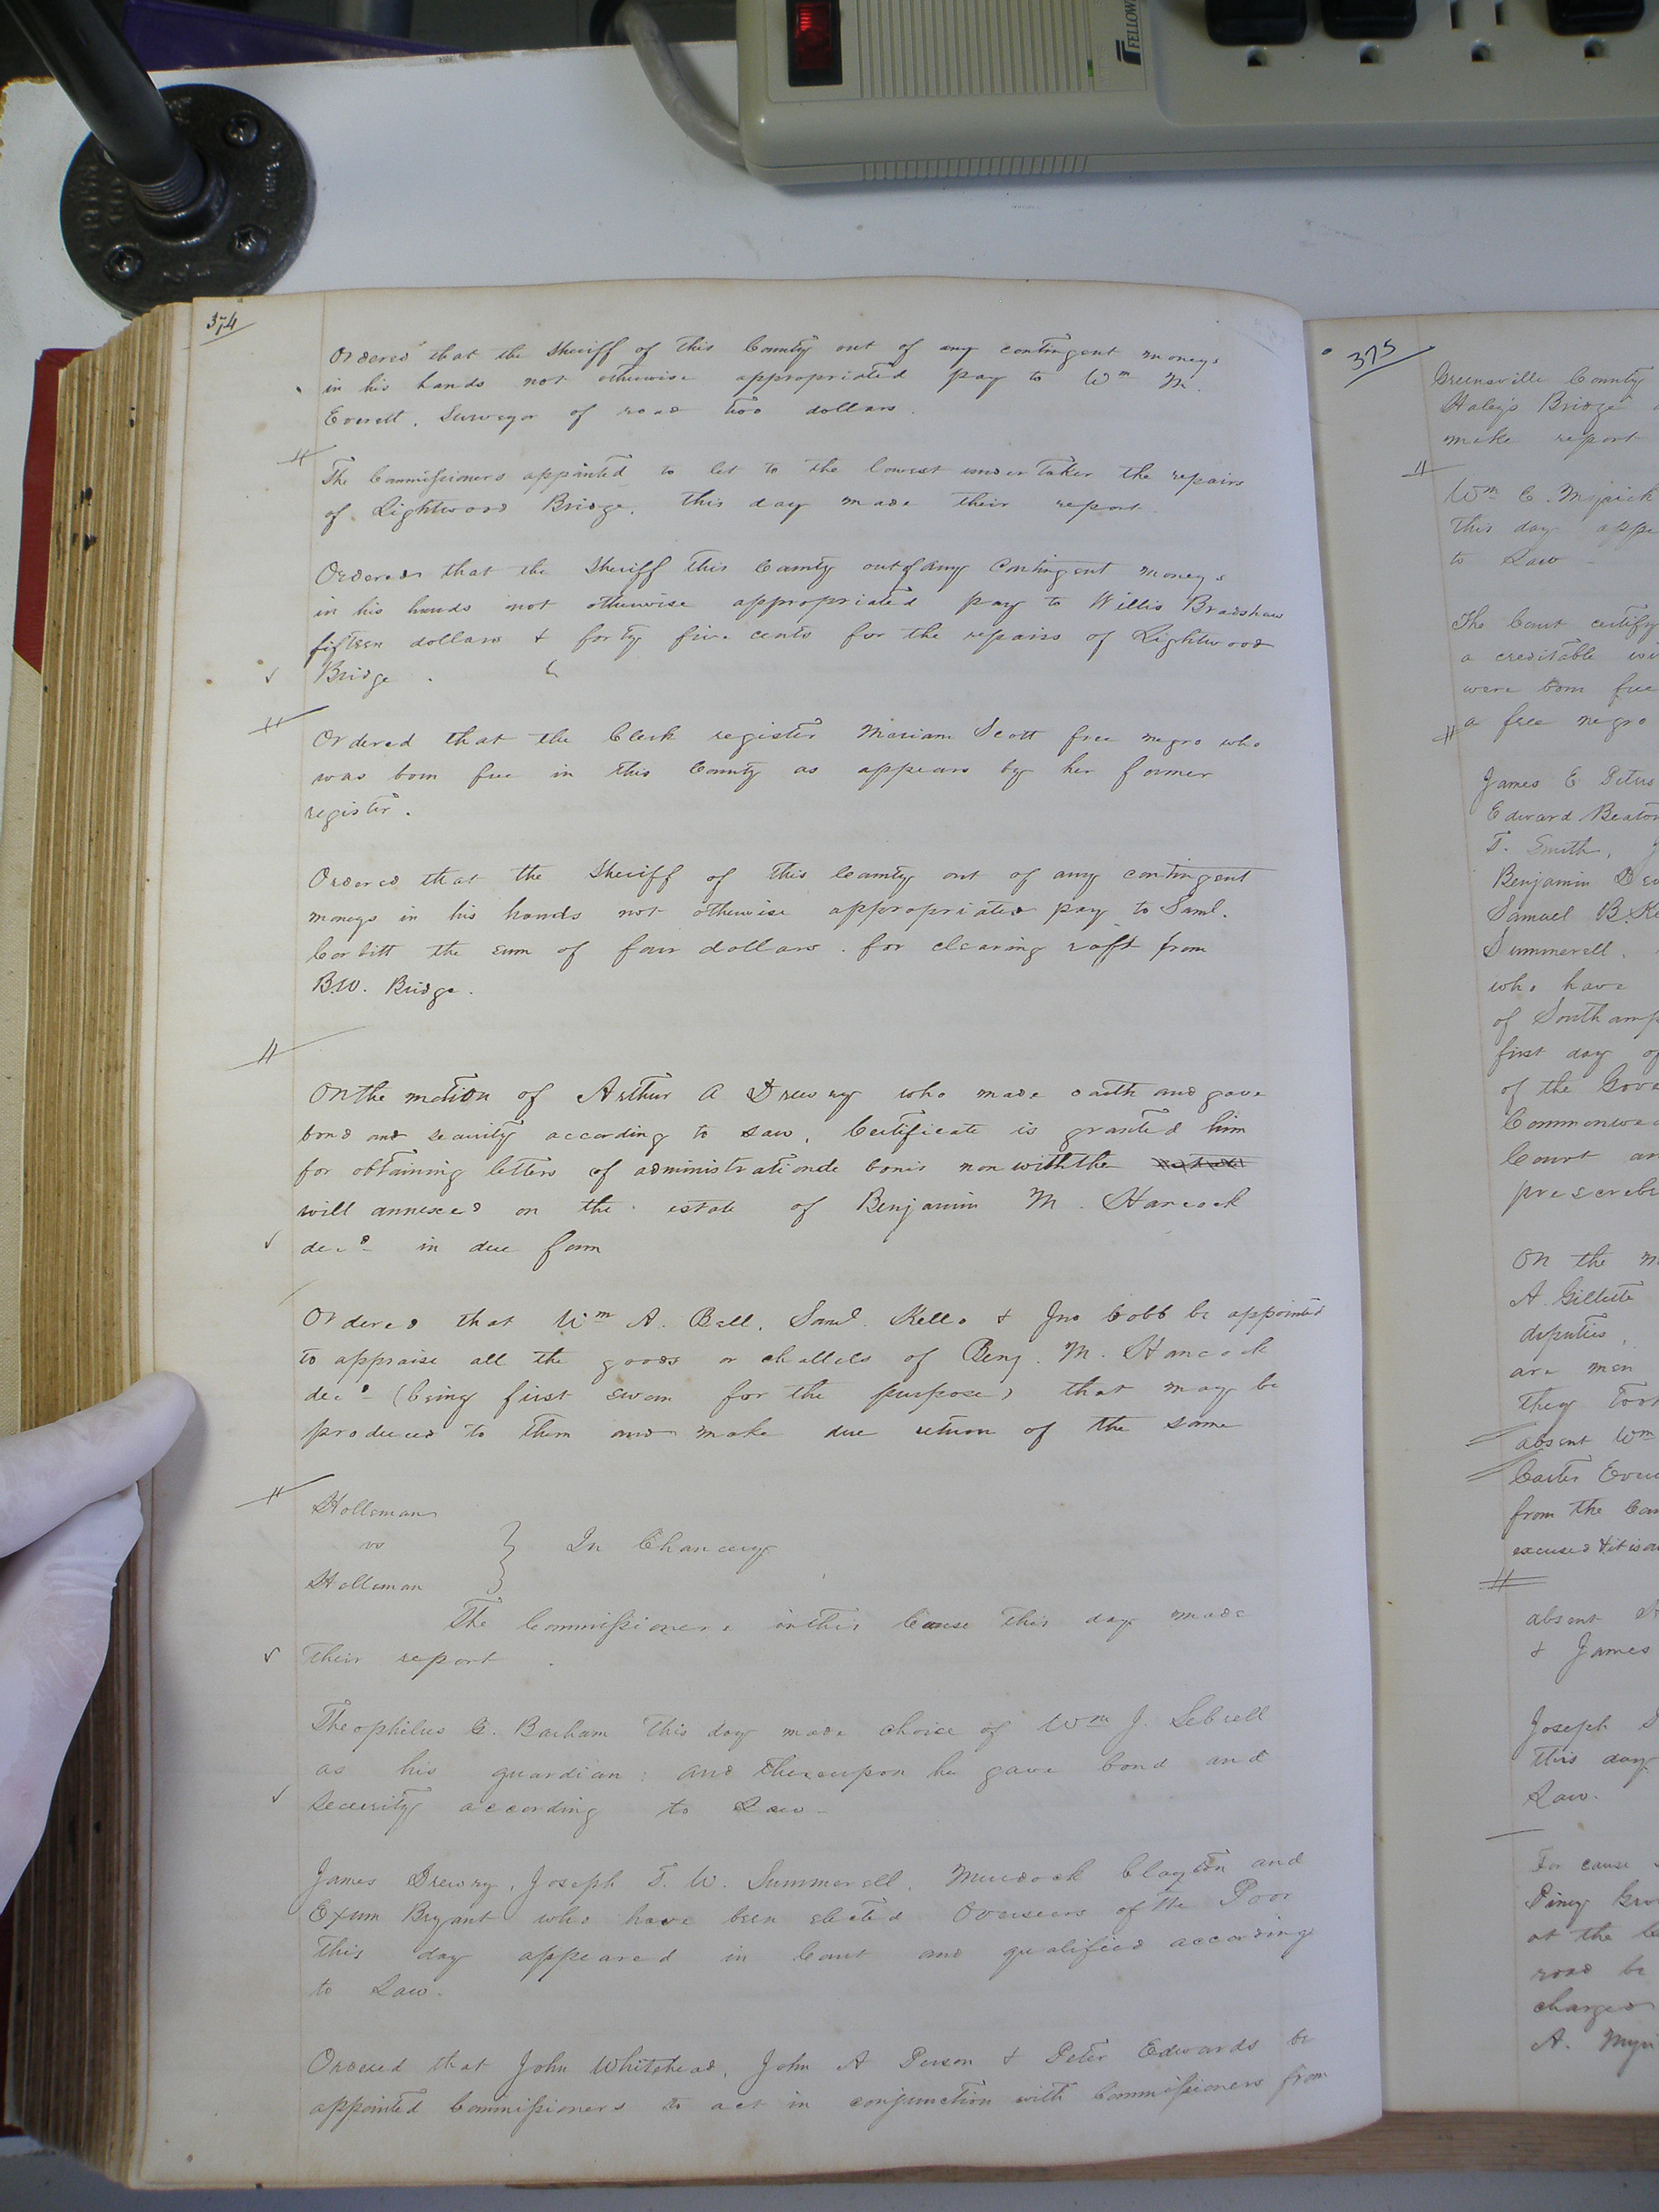 FELLOW
374
Ordered that the Sheriff of this County out of any contingent moneys
in his hands not otherwise appropriated pay to Wm M.
Everett, Surveyor of road two dollars.
The Commissioners appointed to let to the lowest undertaker the repairs
of Lightwood Bridge, this day made their report.
Ordered that the Sheriff this County out of any Contingent moneys
in his hands not otherwise appropriated pay to Willis Bradshaw
fifteen dollars & forty five cents for the repairs of Lightwood
Bridge.
Ordered that the Clerk register Mariam Scott free negro who
was born free in this County as appears by her former
register.
Ordered that the Sheriff of this County out of any contingent
moneys in his hands not otherwise appropriated pay to Saml.
Corbitt the sum of four dollars for clearing raft from
B.W. Bridge.
On the motion of Arthur A Drewry who made oath and gave
bond and security according to Law, Certificate is granted him
for obtaining letters of administration de bonis non with the
will annexed on the estate of Benjamin M. Hancock
decd in due form
Ordered that Wm A. Bell, Saml. Kello & Jno Cobb be appointed
to appraise all the goods or chattels of Benj. M. Hancock
decd (being first sworn for the purpose) that may be
produced to them and make due return of the same
Holleman
vs
Holleman
} In Chancery
The Commissioners in this Cause this day made
their report.
Theophilus G. Barham this day made choice of Wm J. Sebrell
as his guardian: and thereupon he gave bond and
Security according to Law
James Drewry, Joseph T. W. Summerell, Murdock Clayton and
Exum Bryant who have been elected Overseers of the Poor
this day appeared in Court and qualified according
to Law.
Ordered that John Whitehead, John A Person & Peter Edwards be
appointed Commissioners to act in conjunction with Commissioners from
375
Greensville County
Haley's Bridge
make report
Wm C.
This day appe
to Law
The Court certify
a creditable wi
were born free
a free negro
James E Peters
Edward Beaton
T. Smith, J
Benjamin D
Samuel B. Ke
Summerell,
who have
of Southamp
first day of
of the Gove
Commonwea
Court an
prescribe
On the m
A. Gillette
deputies,
are men
they took
absent Wm
Carter Eve
from the Cou
excused & it is or
absent
& James
Joseph
this day
Law.
For cause
Piney Gro
at the
road be
charged
A. Myri